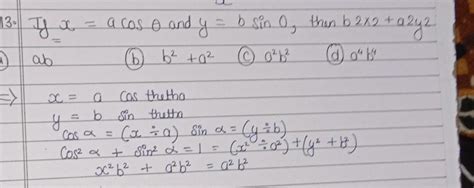 13. If x = a cos θ and y = b sin θ, then b2x2 + a2y2
=
ab (b) b² + a² (c) a²b² (d) a⁴b⁴
=> x = a cos thetha
y = b sin thetha
cos α = (x ÷ a) sin α = (y ÷ b)
cos² α + sin² α = 1 = (x² ÷ a²) + (y² ÷ b²)
x²b² + a²b² = a²b²